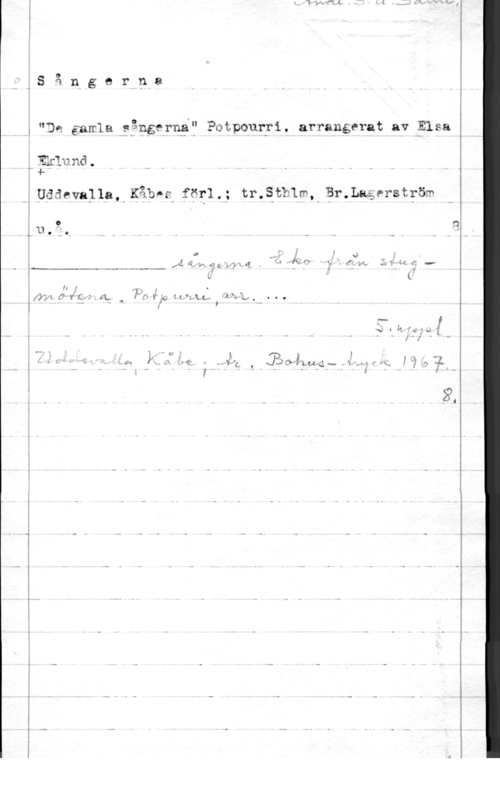 Sångerna
"De gamla sångerna" Potpourri. arrangerat av Elsa
Eklund.
Uddevalla, Kåbes förl.; tr.Sthlm, Br.Lagerström
u.å. 8
sångerna. Eko från stug-
mötena. Potpurri, arr. ...
5. uppl.
Uddevalla, Kåbe; tr. Bohus-tryck 1967.
8.